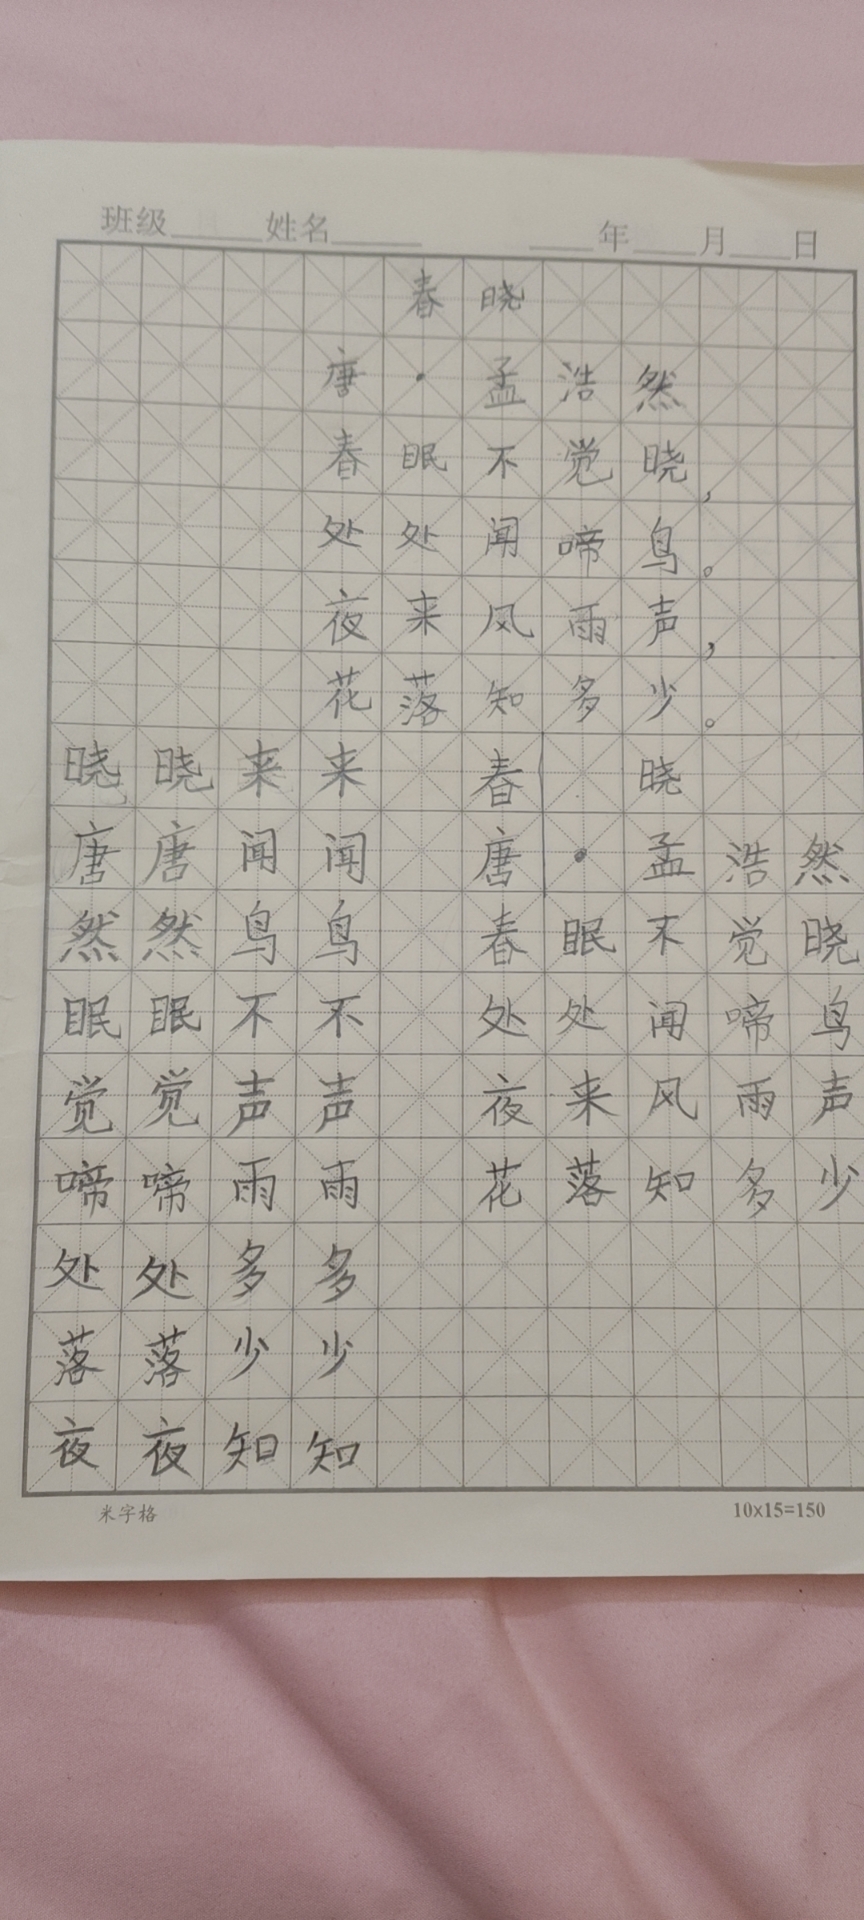 班级 姓名 年 月 日
春晓
唐·孟浩然
春眠不觉晓，
处处闻啼鸟。
夜来风雨声，
花落知多少。
晓晓来来 春 晓
唐唐闻闻 唐·孟浩然
然然鸟鸟 春眠不觉晓
眠眠不不 处处闻啼鸟
觉觉声声 夜来风雨声
啼啼雨雨 花落知多少
处处多多
落落少少
夜夜知知
米字格 10×15=150